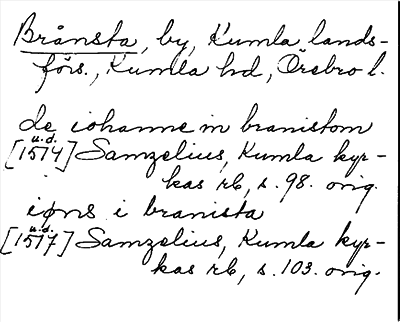 Brånsta, by, Kumla lands-
förs., Kumla hd, Örebro l.
de iohanne in branistom
u.d.
[1514] Samzelius, Kumla kyr-
kas rb, s. 98. orig.
iøns i branista
u.d.
[1517] Samzelius, Kumla kyr-
kas rb, s. 103. orig.